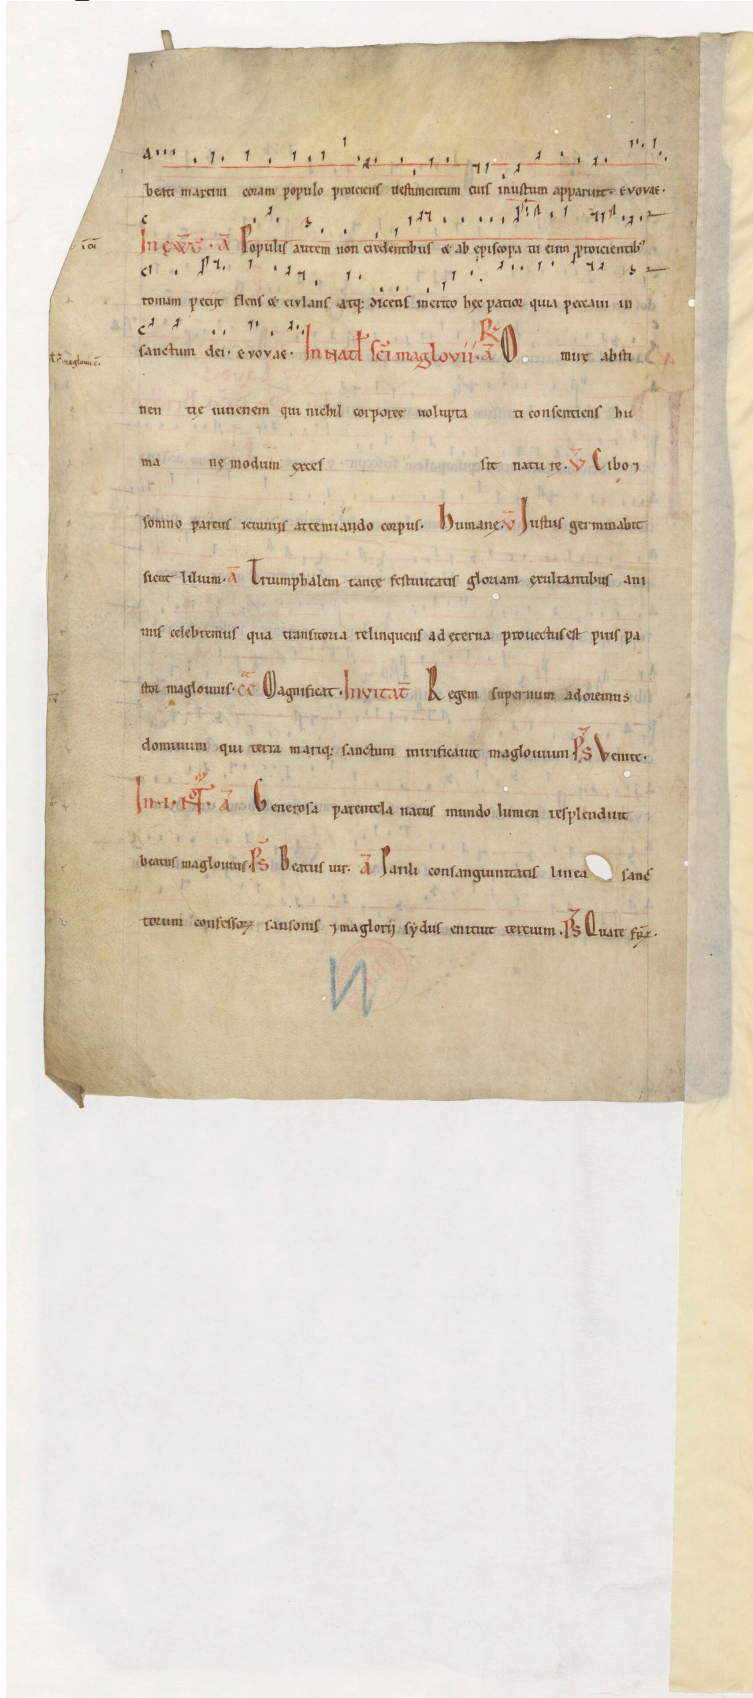 beati martini coram populo proiciens uestimentum eius inustum apparuit. evovae.
In eṽḡ. ā Populis autem non credentibus & ab episcopatu eum proicientib'
romam petiit flens & eiulans atq: dicens merito hęc patior quia peccaui in
sanctum dei. evovae. In natł sc̄i maglovii. R̄ ā O mire absti
nen tię iuuenem qui nichil corporeę uolupta ti consentiens hu
ma nę modum exces sit naturę. v̄ Cibo ⁊
somno parcus ieiuniis attenuando corpus. humanę. v̄ Justus germinabit
sicut lilium. ā Triumphalem tantę festiuitatis gloriam exultantibus ani
mis celebremus qua transitoria relinquens ad ęterna prouectus est pius pa
stor maglouius. cc̄ Magnificat. Invitat̄ Regem supernum adoremus
dominum qui terra mariq: sanctum mirificauit maglouium. Ps̄ Venite.
In .i. not̄. ā Generosa parentela natus mundo lumen resplenduit
beatus maglouius. Ps̄ Beatus uir. ā Parili consanguinitatis linea sanc
torum confessoꝝ sansonis ⁊ maglorij sydus enituit tercium. Ps̄ Quare fr̄.